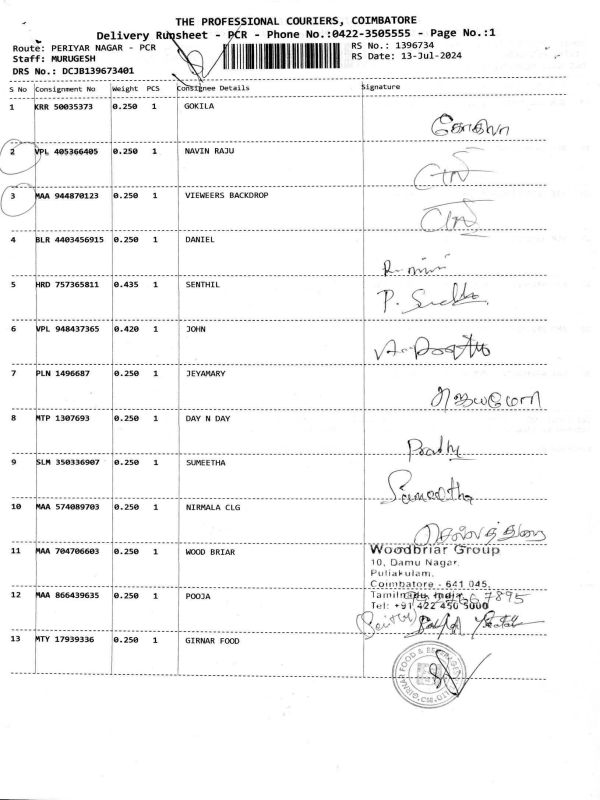 THE PROFESSIONAL COURIERS, COIMBATORE
Delivery Runsheet - PCR - Phone No.:0422-3505555 - Page No.:1
Route: PERIYAR NAGAR - PCR
RS No.: 1396734
Staff: MURUGESH
RS Date: 13-Jul-2024
DRS No.: DCJB139673401
S No Consignment No Weight PCS Consignee Details Signature
1 KRR 50035373 0.250 1 GOKILA
கோகிலா
2 VPL 405366405 0.250 1 NAVIN RAJU
3 MAA 944870123 0.250 1 VIEWEERS BACKDROP
4 BLR 4403456915 0.250 1 DANIEL
5 HRD 757365811 0.435 1 SENTHIL
6 VPL 948437365 0.420 1 JOHN
7 PLN 1496687 0.250 1 JEYAMARY
8 MTP 1307693 0.250 1 DAY N DAY
9 SLM 350336907 0.250 1 SUMEETHA
Sumeetha
10 MAA 574089703 0.250 1 NIRMALA CLG
11 MAA 704706603 0.250 1 WOOD BRIAR
Woodbriar Group
10, Damu Nagar,
Puliakulam,
Coimbatore - 641 045,
12 MAA 866439635 0.250 1 POOJA
Tamilnadu, India
Tel: +91 422 450 5000
13 MTY 17939336 0.250 1 GIRNAR FOOD